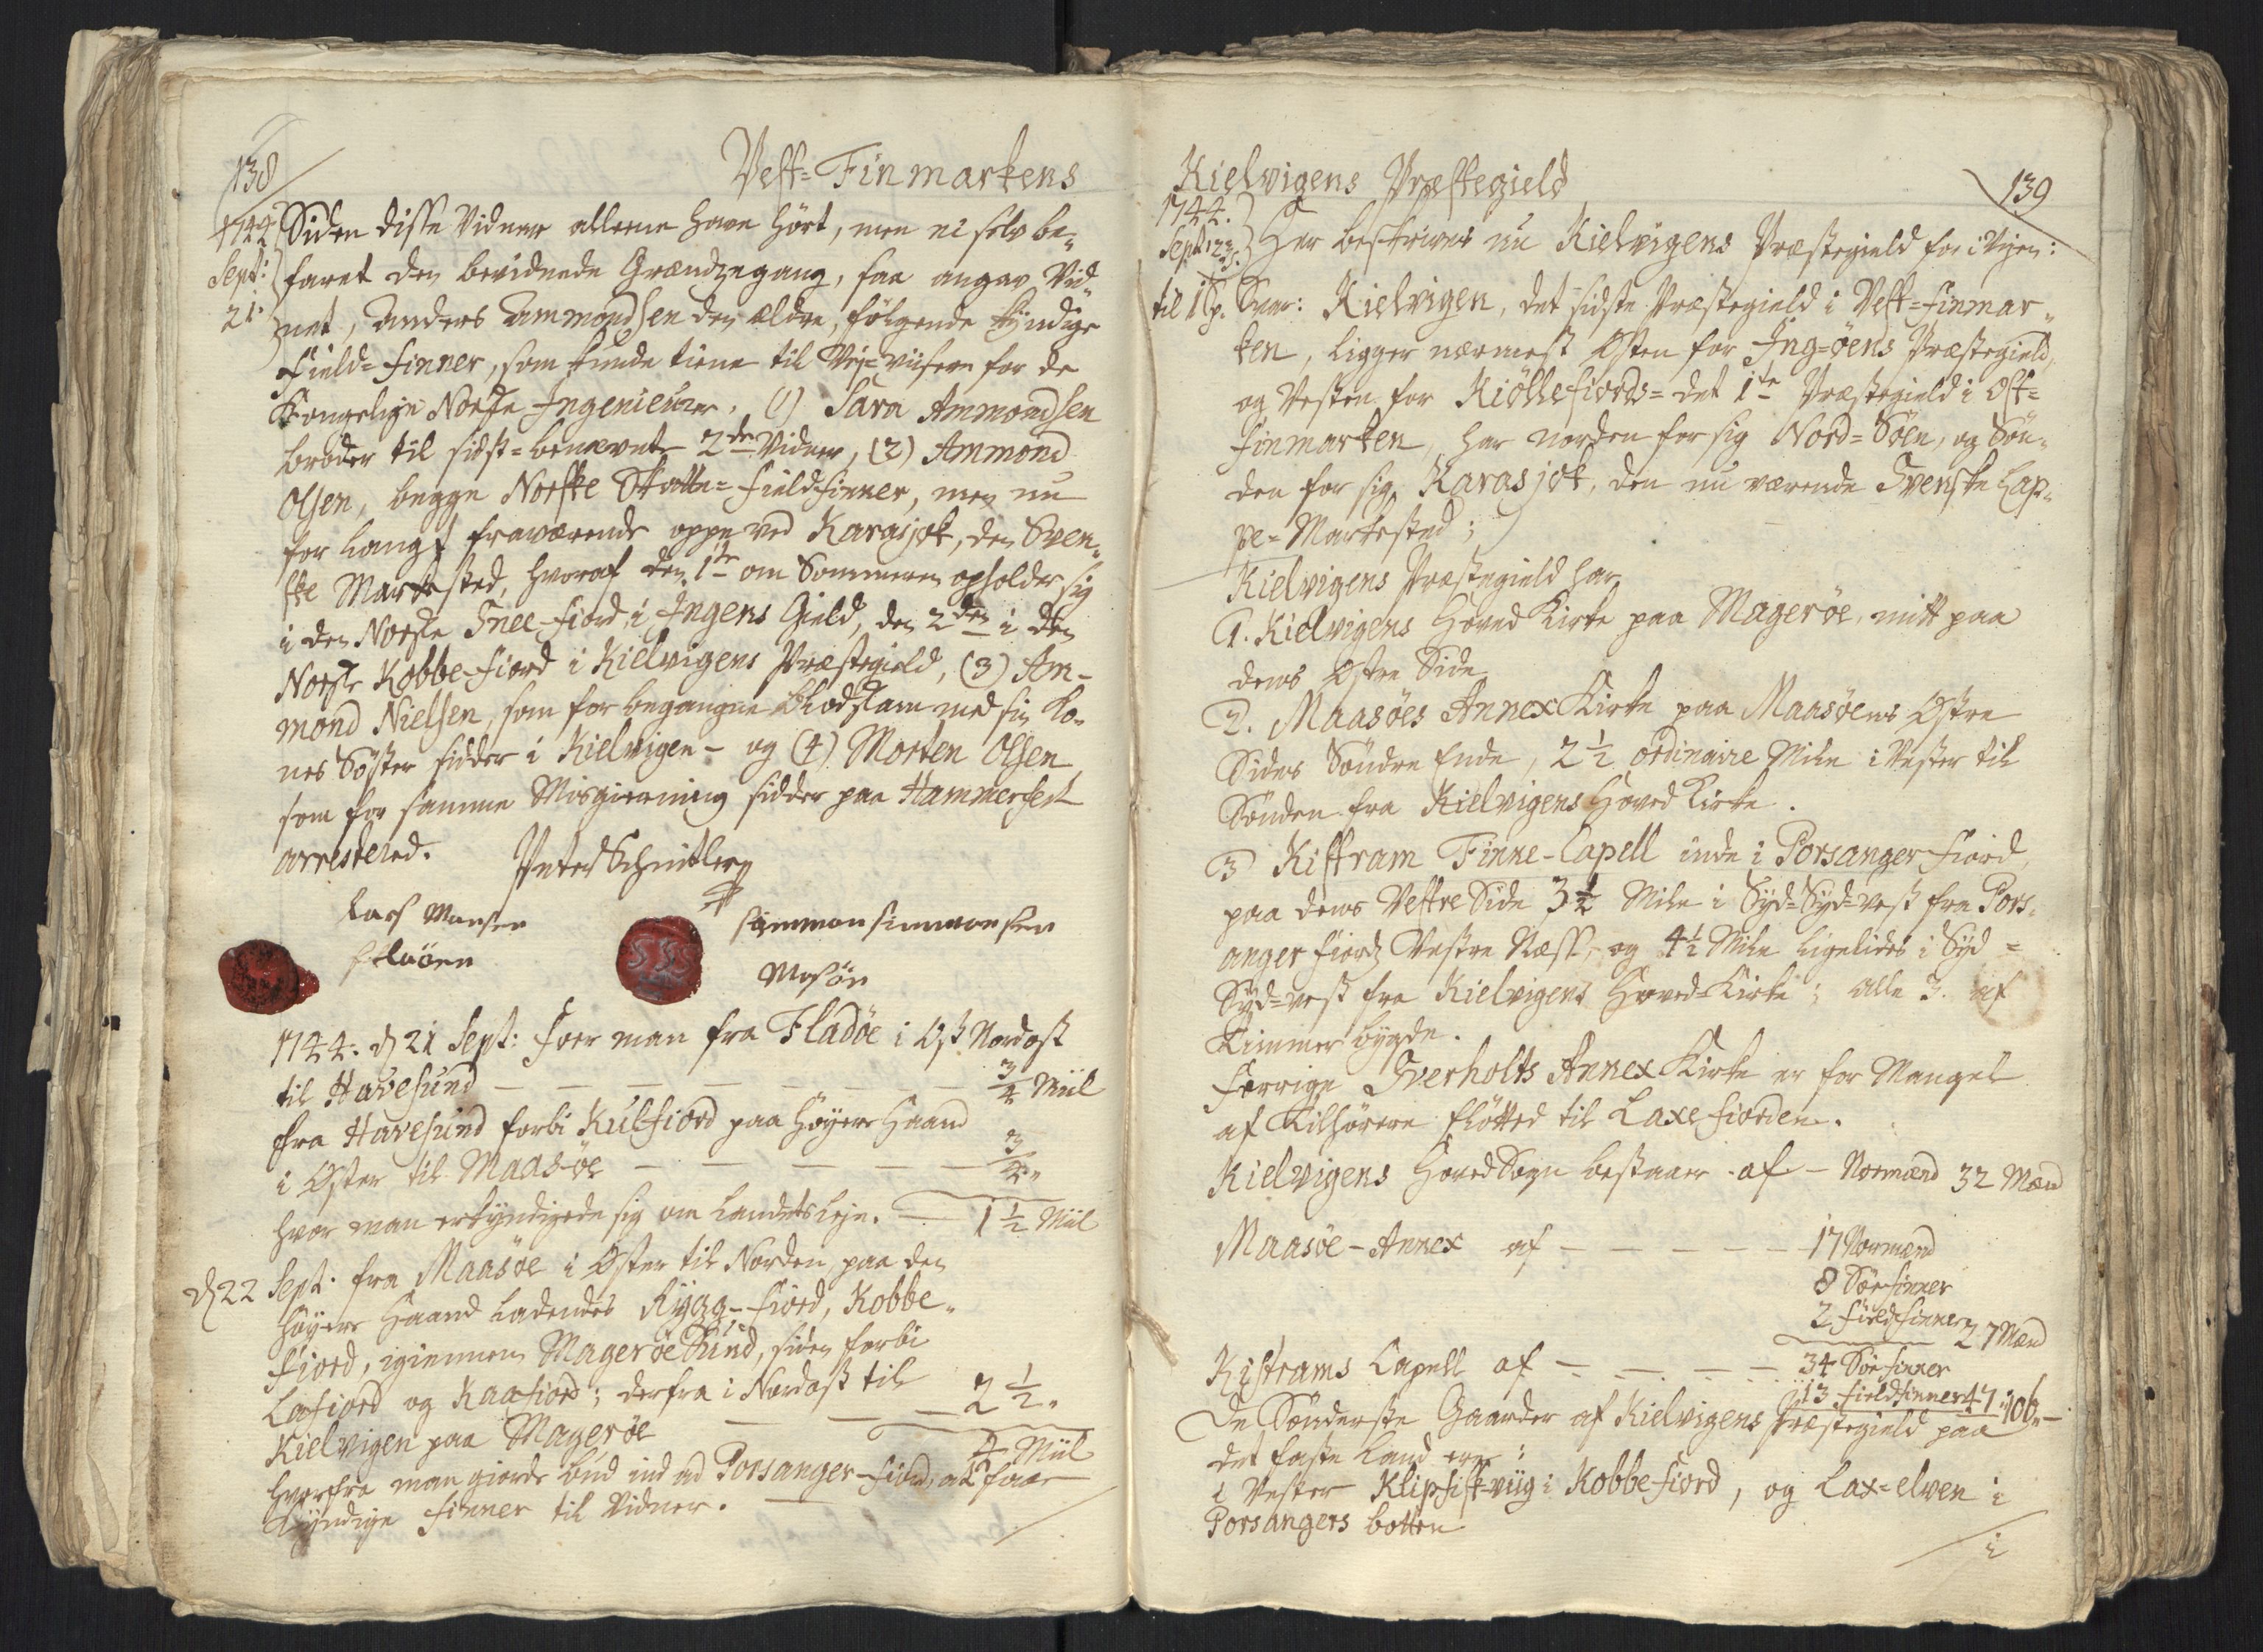 138
Vest-Finmarkens
1744 Siden disse Vidner alleene have hört, men ei selv be-
Sept: faret den bevidnede Grændzegang, saa angav Vid-
21. net, Anders Ammondsen den ældre, fölgende kyndige
Field-Finner, som kunde tiene til Vej-Viisere for de
Kongelige Norske Ingenieurer. (1) Sara Ammondsen
broder til sidst-benævnte 2de Vidner, (2) Ammond
Olsen, begge Norske Skatte-Fieldfinner, men nu
for langt fraværende oppe ved Karasjok, den Sven-
ske Markested, hvoraf den 1te om Sommeren opholder sig
i den Norske Snee-fiord, i Ingens Gield, den 2den i den
Norske Kobbe-fiord i Kielvigens Præstegield, (3) Am-
mond Nielsen, som for begangne blodskam med sin Ko-
nes Söster sidder i Kielvigen - og (4) Morten Olsen
som for samme Misgierning sidder paa Hammerfest
arrestered.
Peter Schnitler
Lars Monsen
simmon simmonsen
Fladöen
Masöen
1744. d 21 Sept: Foer man fra Fladöe i Ost Nordost
til Havesund — — — — — 3/4 Miil
Fra Havesund forbi Kulfiord paa Höyere Haand
i Oster til Maasöe — — — — — 3/4 "
hvor man erkyndigede sig om Landets Leje. — 1 1/2 Miil
d 22 Sept. fra Maasöe i Oster til Norden, paa den
höyere Haand ladendes Rygg-fiord, Kobbe-
Fiord, igiennem Mageröe Sund, siden forbi
Lafiord og Kaafiord; derfra i Nordost til
Kielvigen paa Mageröe — — — 2 1/2 "
4 Miil
hvorfra man giorde bud ind ad Porsanger-fiord, at faae
kyndige Finner til Vidner. —
Kielvigens Præstegield
139
1744.
Sept: 23. Her beskrives nu Kielvigens Præstegield for i Vejen:
til 1 Sp. Svar: Kielvigen, det sidste Præstegield i Vest-Finmar-
ken, ligger nærmest Osten for Ing-öens Præstegield,
og Vesten for Kiöllefiords- det 1te Præstegield i Ost-
Finmarken, har norden for sig Nord-Söen, og Sön-
den for sig Karasjok, den nu værende Svenske Lap-
pe-Markested;
Kielvigens Præstegield har
1. Kielvigens Hoved Kirke paa Mageröe, mitt paa
dens Ostre Side
2. Maasöes Annex Kirke paa Maasöens Ostre
Sides Söndre Ende, 2 1/2 ordinaire Mile i Vester til
Sönden fra Kielvigens Hoved Kirke.
3 Kistram Finne-Capell inde i Porsanger Fiord,
paa dens Vestre Side 3 1/2 Mile i Syd-Syd-vest fra Pors-
anger fiords Vestre Næss, og 4 1/2 Mile ligeledes i Syd-
Syd-vest fra Kielvigens Hoved-Kirke; alle 3. af
Timmer bygde.
Forrige Sverholts Annex Kirke er for Mangel
af Tilhörere flötted til Laxefiorden.
Kielvigens Hoved Sogn bestaaer af — Normænd 32 Mænd
Maasöe-Annex af — — — — 17 Normænd
8 Söe finner
2 Fieldfinner 27 Mænd
Kistrams Capell af — — — — 34 Söe finner
13 Fieldfinner 47 " 106 —
De Sönderste Gaarder af Kielvigens Præstegield paa
det faste Land ere:
i Vester Klipfisk-viig i Kobbefiord, og Lax-elven i
Porsangers botten
i